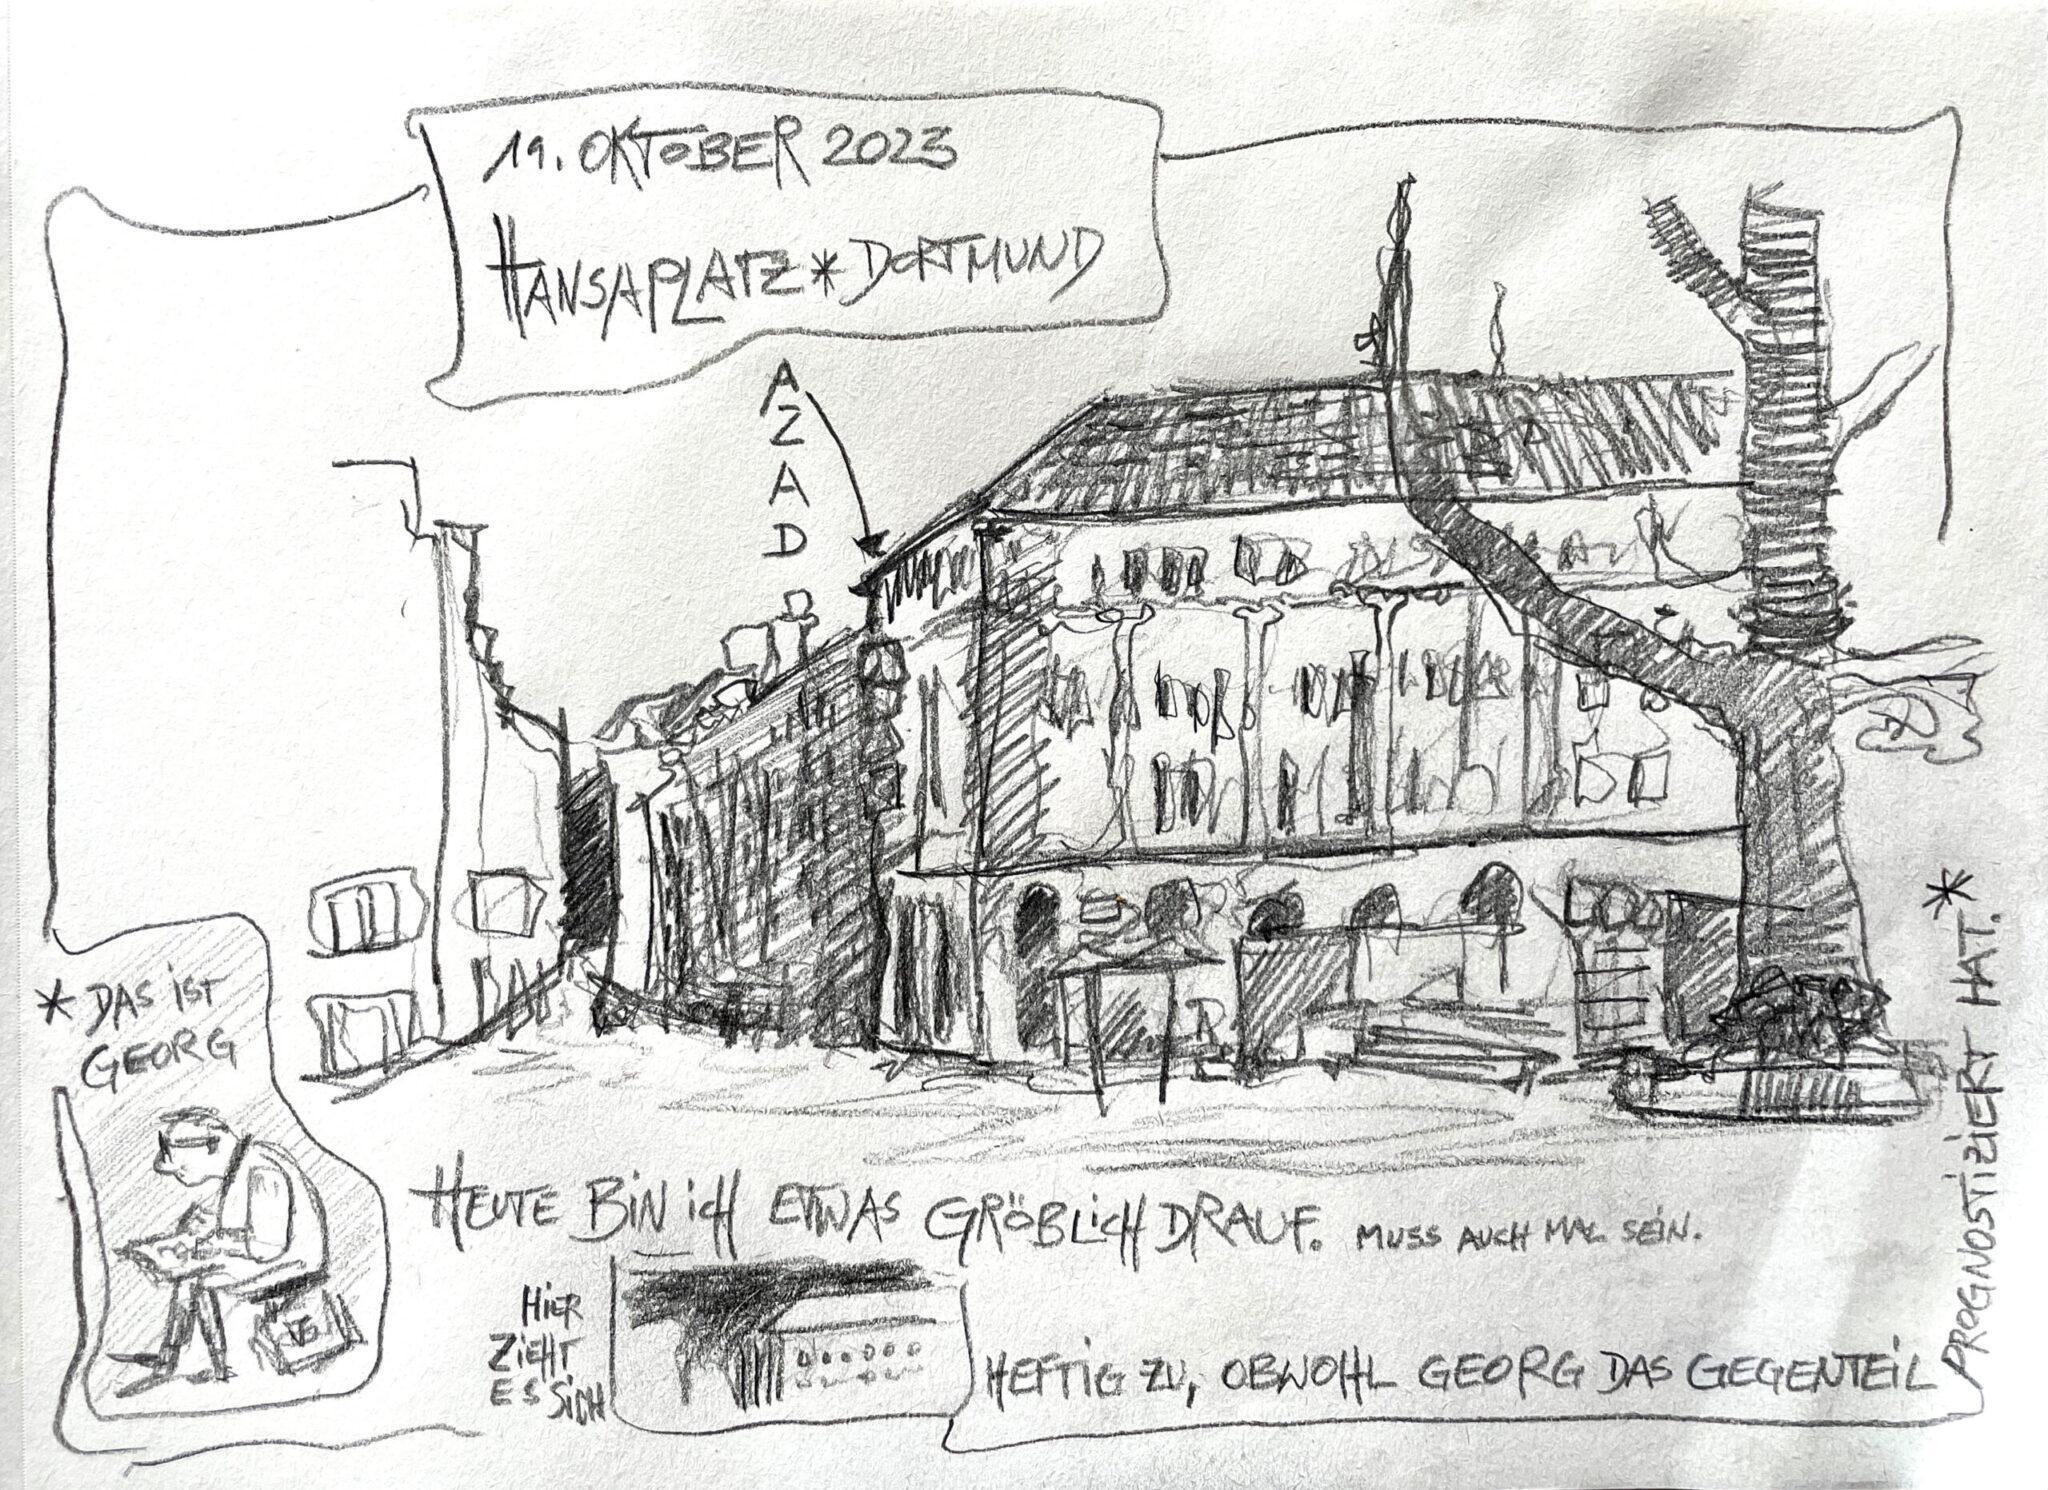 19. OKTOBER 2023
HANSAPLATZ * DORTMUND
AZAD
* DAS IST
GEORG
HEUTE BIN ICH ETWAS GRÖBLICH DRAUF. MUSS AUCH MAL SEIN.
HIER
ZIEHT
ES SICH
HEFTIG ZU, OBWOHL GEORG DAS GEGENTEIL
PROGNOSTIZIERT HAT. *